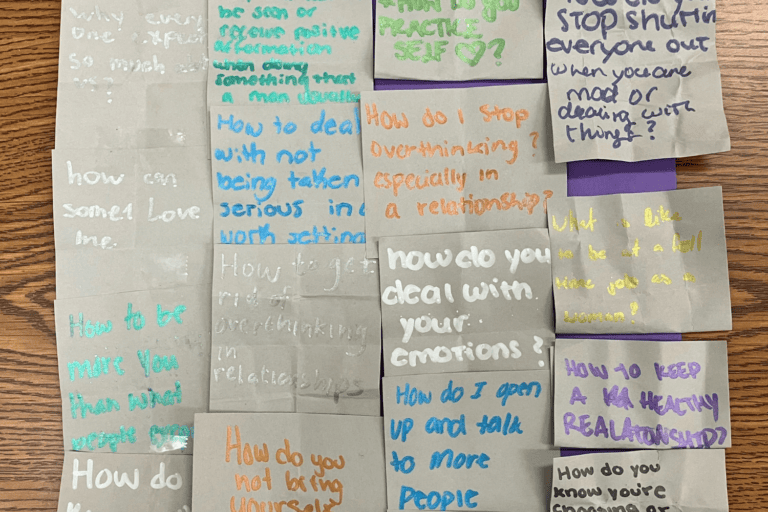 why every
one expect
so much
be seen or
receive positive
afformation
when doing
something that
a man usually
How do you
PRACTICE
SELF ♡?
STOP shuttin
everyone out
when you are
mad or
dealing with
things?
how can
some1 Love
me.
How to deal
with not
being taken
serious in a
work setting
How do I stop
overthinking?
especially in
a relationship?
what is like
to be at a
time job as a
woman?
How to get
rid of
overthinking
in
relationships
how do you
deal with
your
emotions?
How to be
more you
than what
people
How do you
not bring
yourself
How do I open
up and talk
to more
people
HOW TO KEEP
A HEALTHY
REALATIONSHIP?
How do
How do you
know you're
choosing or